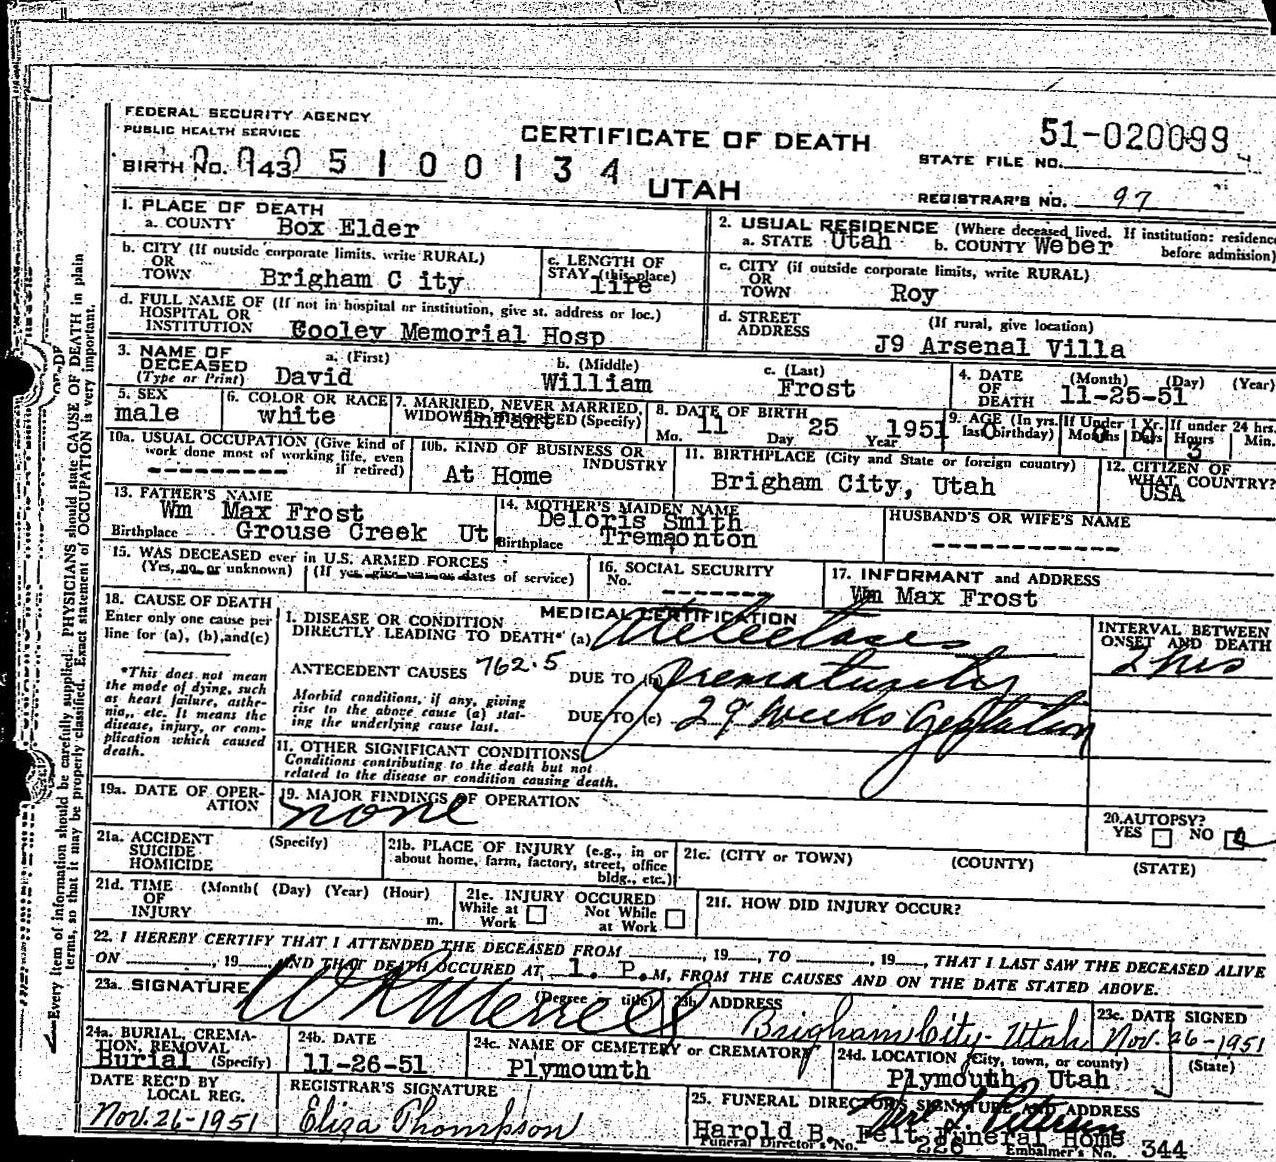 FEDERAL SECURITY AGENCY
PUBLIC HEALTH SERVICE
CERTIFICATE OF DEATH
51-020099
STATE FILE NO.
BIRTH NO. 143 5 1 0 0 1 3 4
UTAH
REGISTRAR'S NO. 97
1. PLACE OF DEATH
a. COUNTY Box Elder
2. USUAL RESIDENCE (Where deceased lived. If institution: residence before admission)
a. STATE Utah b. COUNTY Weber
b. CITY (If outside corporate limits, write RURAL)
OR
TOWN Brigham C ity
c. LENGTH OF
STAY (this place)
life
c. CITY (if outside corporate limits, write RURAL)
OR
TOWN Roy
d. FULL NAME OF (If not in hospital or institution, give st. address or loc.)
HOSPITAL OR
INSTITUTION Cooley Memorial Hosp
d. STREET (If rural, give location)
ADDRESS J9 Arsenal Villa
3. NAME OF
DECEASED
(Type or Print)
a. (First) David
b. (Middle) William
c. (Last) Frost
4. DATE (Month) (Day) (Year)
OF
DEATH 11-25-51
5. SEX
male
6. COLOR OR RACE
white
7. MARRIED, NEVER MARRIED,
WIDOWED, DIVORCED (Specify)
infant
8. DATE OF BIRTH
Mo. 11 Day 25 Year 1951
9. AGE (In yrs. last birthday) 0
If Under 1 Yr. Months 0 Days 0
If under 24 hrs. Hours 3 Min.
10a. USUAL OCCUPATION (Give kind of
work done most of working life, even
if retired)
10b. KIND OF BUSINESS OR
INDUSTRY
At Home
11. BIRTHPLACE (City and State or foreign country)
Brigham City, Utah
12. CITIZEN OF
WHAT COUNTRY?
USA
13. FATHER'S NAME
Wm Max Frost
Birthplace Grouse Creek Ut
14. MOTHER'S MAIDEN NAME
Deloris Smith
Birthplace Tremaonton
HUSBAND'S OR WIFE'S NAME
15. WAS DECEASED ever in U.S. ARMED FORCES
(Yes, no or unknown) (If yes give war or dates of service)
16. SOCIAL SECURITY
No.
17. INFORMANT and ADDRESS
Wm Max Frost
18. CAUSE OF DEATH
Enter only one cause per
line for (a), (b), and (c)
*This does not mean
the mode of dying, such
as heart failure, asthe-
nia, etc. It means the
disease, injury, or com-
plication which caused
death.
MEDICAL CERTIFICATION
I. DISEASE OR CONDITION
DIRECTLY LEADING TO DEATH* (a) Atelectases
ANTECEDENT CAUSES 762.5
DUE TO (b) Prematurity
Morbid conditions, if any, giving
rise to the above cause (a) stat-
ing the underlying cause last.
DUE TO (c) 29 Weeks Gestation
INTERVAL BETWEEN
ONSET AND DEATH
2 hrs
11. OTHER SIGNIFICANT CONDITIONS
Conditions contributing to the death but not
related to the disease or condition causing death.
19a. DATE OF OPER-
ATION
19. MAJOR FINDINGS OF OPERATION
none
20. AUTOPSY?
YES NO
21a. ACCIDENT (Specify)
SUICIDE
HOMICIDE
21b. PLACE OF INJURY (e.g., in or
about home, farm, factory, street, office
bldg., etc.)
21c. (CITY or TOWN) (COUNTY) (STATE)
21d. TIME (Month( (Day) (Year) (Hour)
OF
INJURY m.
21e. INJURY OCCURED
While at Work Not While at Work
21f. HOW DID INJURY OCCUR?
22. I HEREBY CERTIFY THAT I ATTENDED THE DECEASED FROM , 19 , TO , 19 , THAT I LAST SAW THE DECEASED ALIVE
ON , 19 AND THAT DEATH OCCURED AT 1. P.M, FROM THE CAUSES AND ON THE DATE STATED ABOVE.
23a. SIGNATURE (Degree title)
W R Merrell
23b ADDRESS
Brigham City - Utah
23c. DATE SIGNED
Nov. 26-1951
24a. BURIAL, CREMA-
TION, REMOVAL
Burial (Specify)
24b. DATE
11-26-51
24c. NAME OF CEMETERY or CREMATORY
Plymounth
24d. LOCATION (City, town, or county) (State)
Plymouth, Utah
DATE REC'D BY
LOCAL REG.
Nov. 26-1951
REGISTRAR'S SIGNATURE
Eliza Thompson
25. FUNERAL DIRECTOR'S SIGNATURE AND ADDRESS
Harold B. Felt Funeral Home
Funeral Director's No. 226 Embalmer's No. 344
Every item of information should be carefully supplied. PHYSICIANS should state CAUSE OF DEATH in plain
terms, so that it may be properly classified. Exact statement of OCCUPATION is very important.